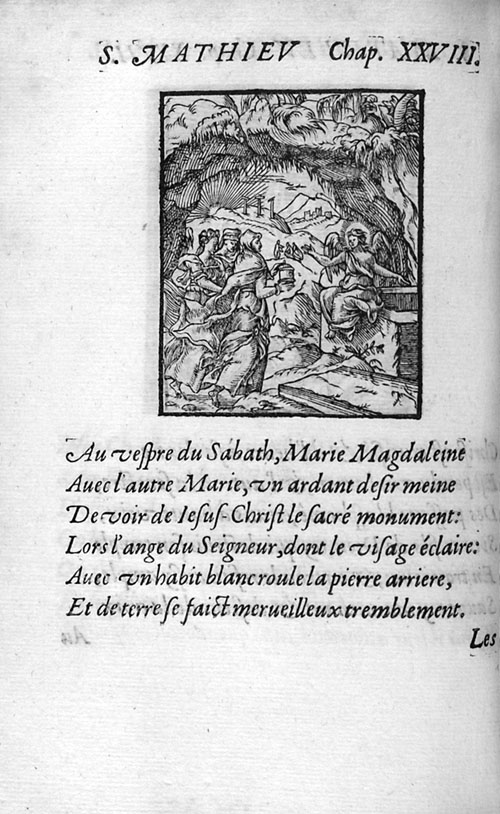 S. MATHIEV Chap. XXVIII.
Au vespre du Sabath, Marie Magdaleine
Auec l'autre Marie, vn ardant desir meine
De voir de Iesus-Christ le sacré monument:
Lors l'ange du Seigneur, dont le visage éclaire:
Auec vn habit blanc roule la pierre arriere,
Et de terre se faict merueilleux tremblement.
Les